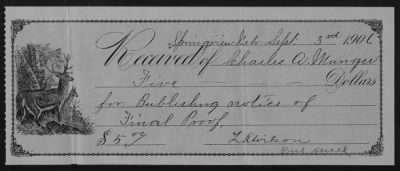 Springview Neb. Sept. 3rd 1906
Received of Charles A. Munger
Five Dollars
for Publishing notice of
Final Proof.
$5.00 Wilson